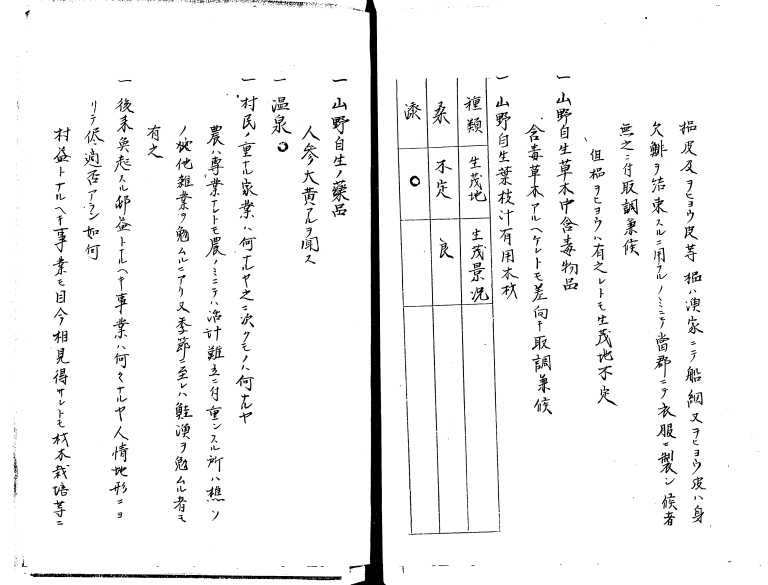 樞皮及ヲヒョウ皮等 樞ハ漁家ニテ船綱又ヲヒョウ皮ハ身
欠鯡ヲ結束スルニ用フルノミニテ當郡ニテ衣服ニ製シ候者
無之ニ付取調兼候
但樞ヲヒョウハ有之レトモ生茂地不定
一 山野自生草木中含毒物品
含毒草木アルヘケレトモ差向キ取調兼候
一 山野自生葉枝汁有用木材
種類 生茂地 生茂景况
桑 不定 良
漆 〇
一 山野自生ノ藥品
人參大黄アルヲ聞ス
一 温泉 〇
一 村民ノ重ナル家業ハ何ナルヤ之ニ次クモノハ何ナルヤ
農ハ專業ナレトモ農ノミニテハ活計難立ニ付重ンスル所ハ樵ソ
ノ他雜業ヲ勉ムルニアリ又季節ニ至レハ鮭漁ヲ勉ムル者モ
有之
一 後来興起スル郡益トナルヘキ事業ハ何々ナルヤ人情地形ニヨ
リテ適否アラン如何
村益トナルヘキ事業モ目今相見得サレトモ材木栽培等ニ